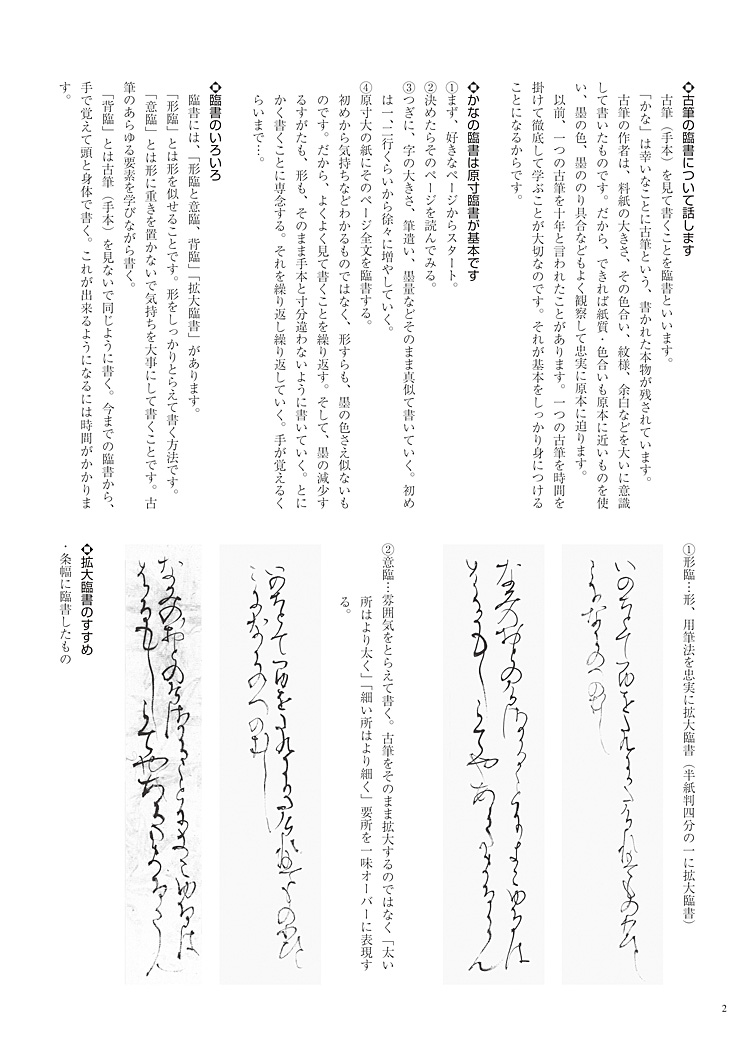 ◆古筆の臨書について話します
古筆（手本）を見て書くことを臨書といいます。
「かな」は幸いなことに古筆という、書かれた本物が残されています。
古筆の作者は、料紙の大きさ、その色合い、紋様、余白などを大いに意識
して書いたものです。だから、できれば紙質・色合いも原本に近いものを使
い、墨の色、墨ののり具合などもよく観察して忠実に原本に迫ります。
以前、一つの古筆を十年と言われたことがあります。一つの古筆を時間を
掛けて徹底して学ぶことが大切なのです。それが基本をしっかり身につける
ことになるからです。
◆かなの臨書は原寸臨書が基本です
①まず、好きなページからスタート。
②決めたらそのページを読んでみる。
③つぎに、字の大きさ、筆遣い、墨量などそのまま真似て書いていく。初め
は一、二行くらいから徐々に増やしていく。
④原寸大の紙にそのページ全文を臨書する。
初めから気持ちなどわかるものではなく、形すらも、墨の色さえ似ないも
のです。だから、よくよく見て書くことを繰り返す。そして、墨の減少す
るすがたも、形も、そのまま手本と寸分違わないように書いていく。とに
かく書くことに専念する。それを繰り返し繰り返していく。手が覚えるく
らいまで…。
◆臨書のいろいろ
臨書には、「形臨と意臨、背臨」「拡大臨書」があります。
「形臨」とは形を似せることです。形をしっかりとらえて書く方法です。
「意臨」とは形に重きを置かないで気持ちを大事にして書くことです。古
筆のあらゆる要素を学びながら書く。
「背臨」とは古筆（手本）を見ないで同じように書く。今までの臨書から、
手で覚えて頭と身体で書く。これが出来るようになるには時間がかかりま
す。
①形臨…形、用筆法を忠実に拡大臨書（半紙判四分の一に拡大臨書）
②意臨…雰囲気をとらえて書く。古筆をそのまま拡大するのではなく「太い
所はより太く」「細い所はより細く」要所を一味オーバーに表現す
る。
◆拡大臨書のすすめ
・条幅に臨書したもの
2